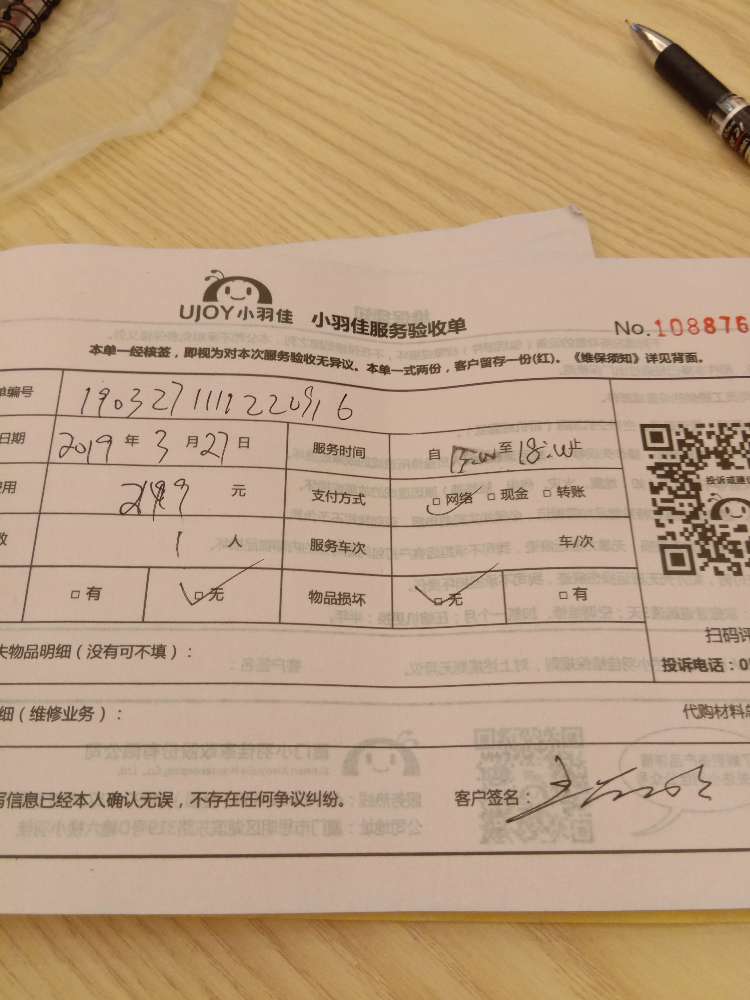 UJOY小羽佳 小羽佳服务验收单
No.108876
本单一经核签，即视为对本次服务验收无异议。本单一式两份，客户留存一份(红)。《维保须知》详见背面。
单编号
日期 2019 年 3 月 27 日 服务时间 自 至 18:00 止
费用 299 元 支付方式 □网络 □现金 □转账
数 1 人 服务车次 车/次
□有 □无 物品损坏 □无 □有
投诉或建议
扫码评
失物品明细（没有可不填）： 投诉电话：0
细（维修业务）： 代购材料
写信息已经本人确认无误，不存在任何争议纠纷。 客户签名：